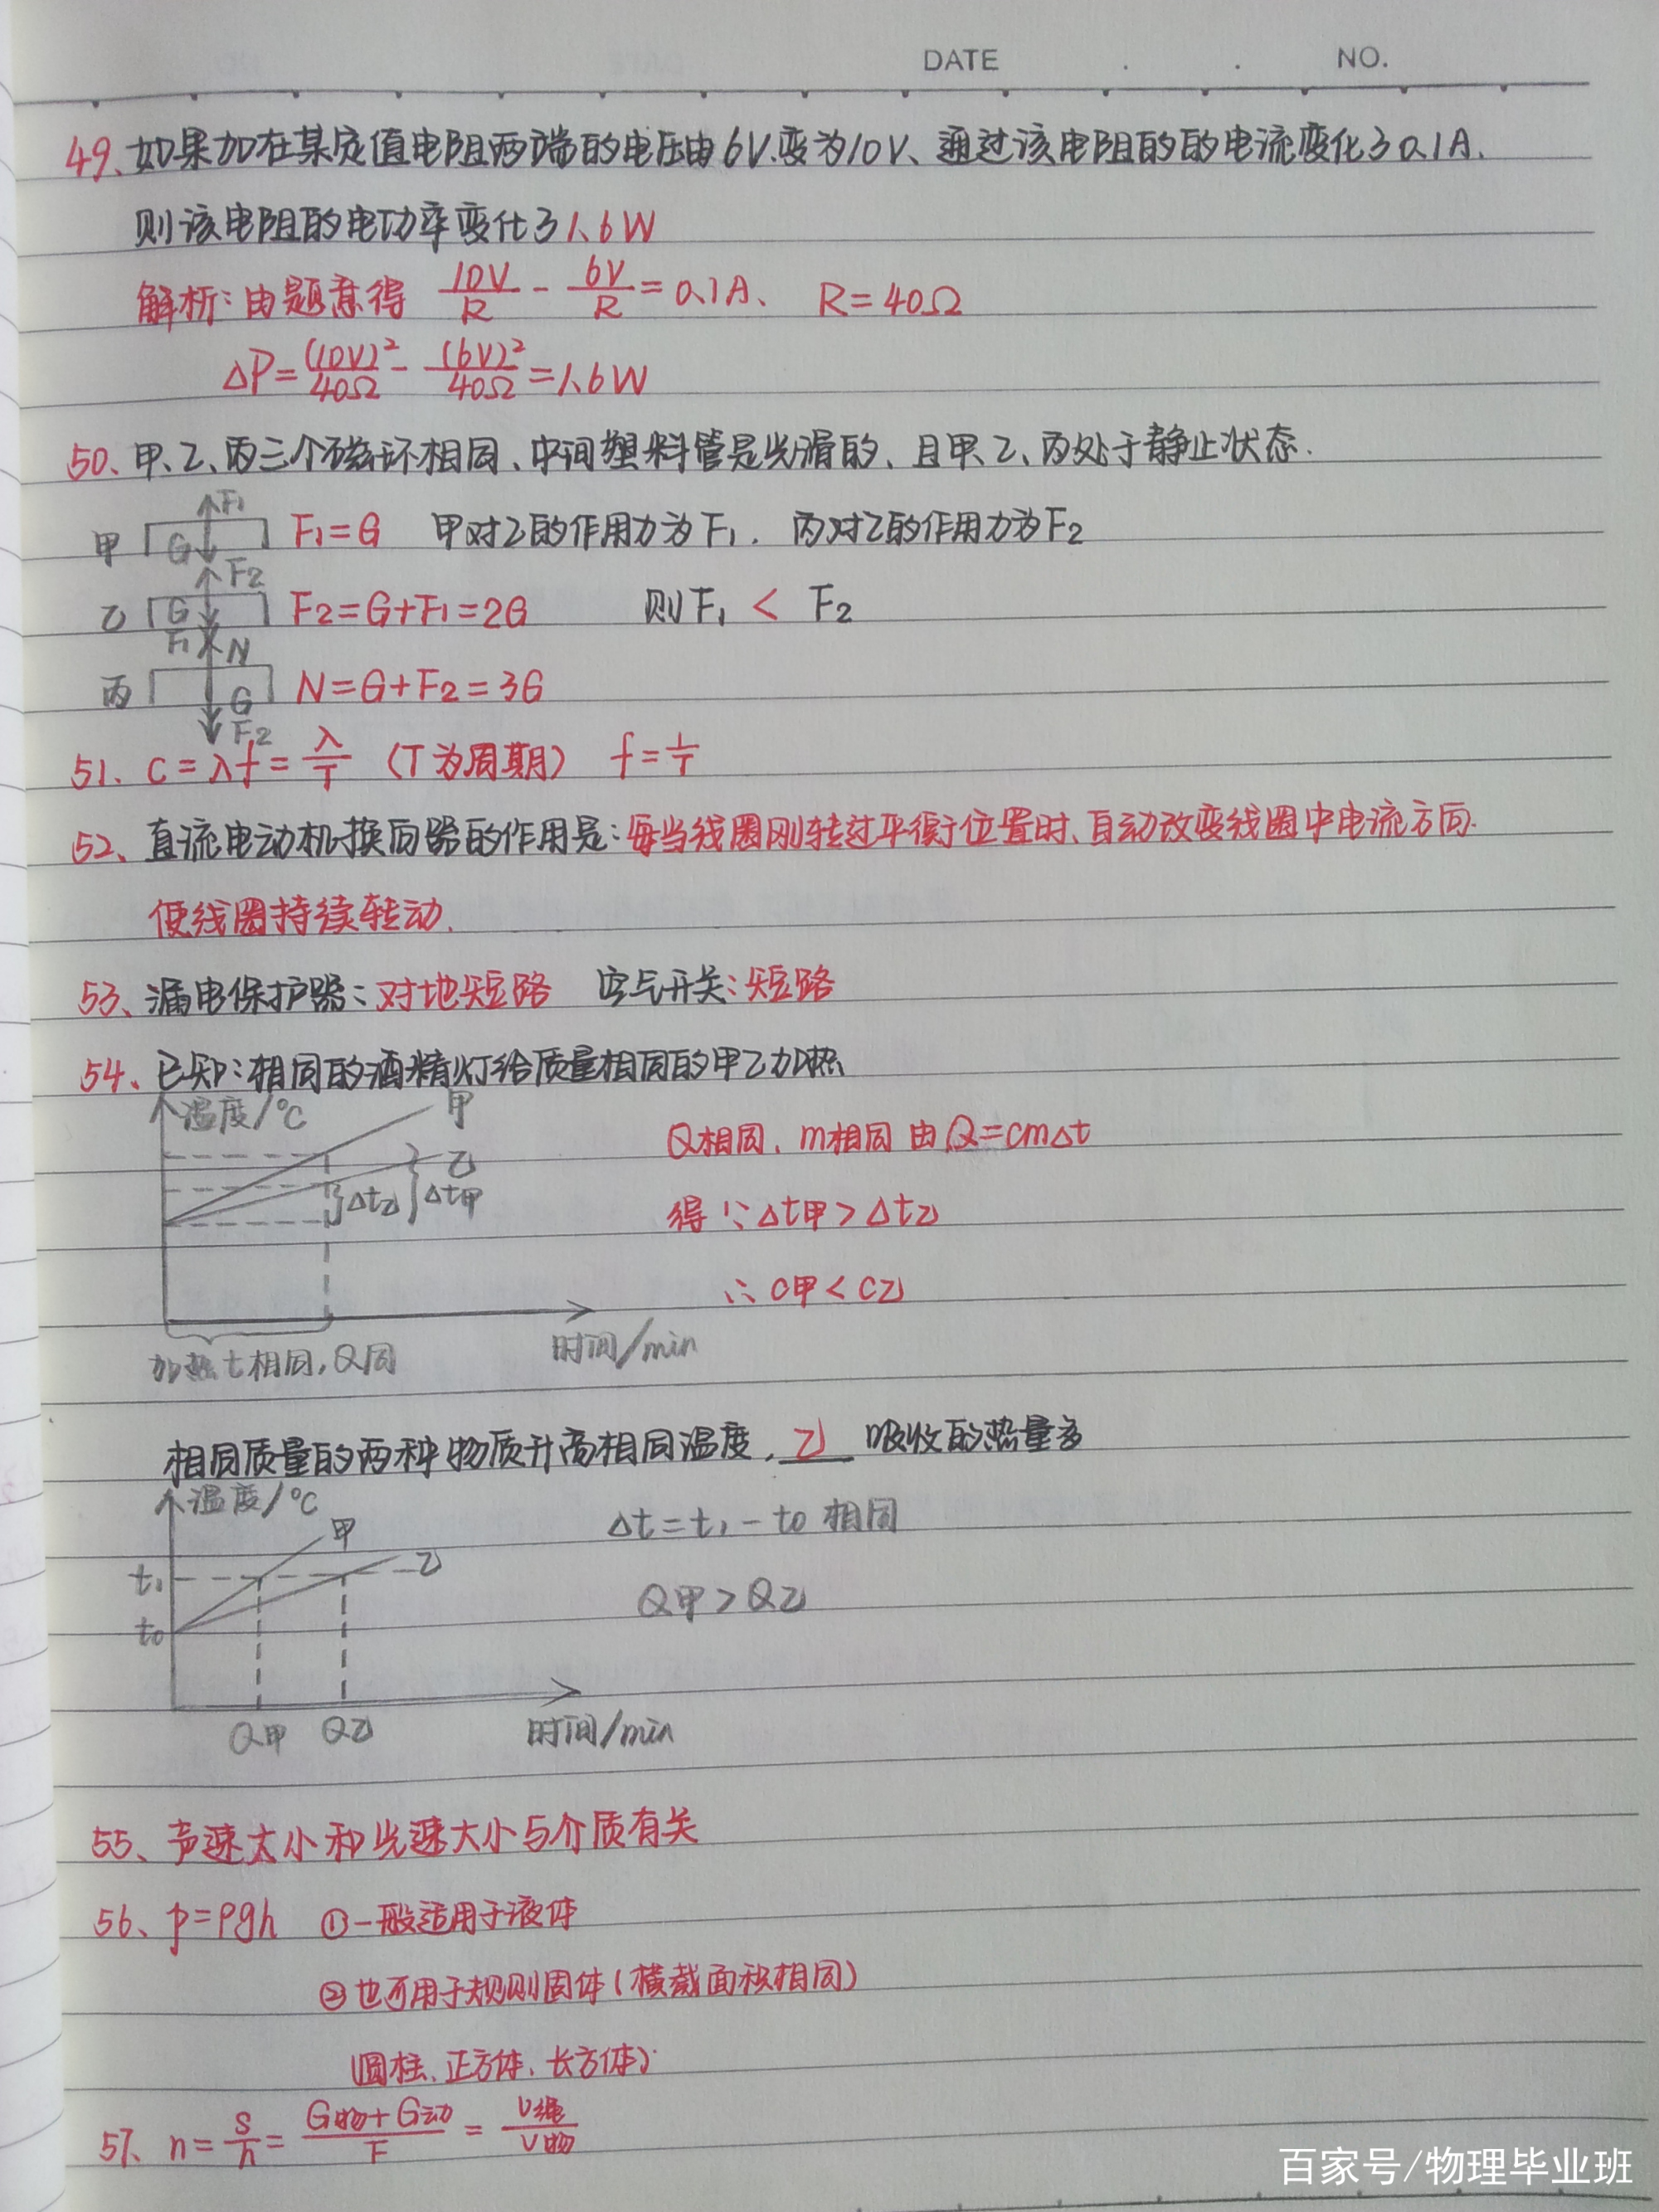 DATE . . NO.
49、如果加在某定值电阻两端的电压由6V.变为10V、通过该电阻的的电流变化了0.1A.
则该电阻的电功率变化了1.6W
解析：由题意得 10V/R - 6V/R = 0.1A、 R=40Ω
ΔP=(10V)²/40Ω - (6V)²/40Ω =1.6W
50、甲、乙、丙三个磁环相同、中间塑料管是光滑的、且甲、乙、丙处于静止状态.
甲 F1 G F1=G 甲对乙的作用力为F1. 丙对乙的作用力为F2
乙 F2 G F1 F2=G+F1=2G 则F1 < F2
丙 N G F2 N=G+F2=3G
51、c=λf=λ/T (T为周期) f=1/T
52、直流电动机换向器的作用是：每当线圈刚转过平衡位置时、自动改变线圈中电流方向.
使线圈持续转动.
53、漏电保护器：对地短路 空气开关：短路
54、已知：相同的酒精灯给质量相同的甲乙加热
温度/℃ 甲
乙 Δt乙 Δt甲
Q相同, m相同 由Q=cmΔt
得 ∵Δt甲>Δt乙
∴c甲<c乙
时间/min
加热t相同,Q同
相同质量的两种物质升高相同温度, 乙 吸收的热量多
温度/℃ 甲 乙
Δt=t1-t0 相同
t1
t0
Q甲>Q乙
Q甲 Q乙 时间/min
55、声速大小和光速大小与介质有关
56、p=ρgh ①一般适用于液体
②也可用于规则固体(横截面积相同)
(圆柱、正方体、长方体)
57、n=s/h=G物+G动/F=v绳/v物
百家号/物理毕业班